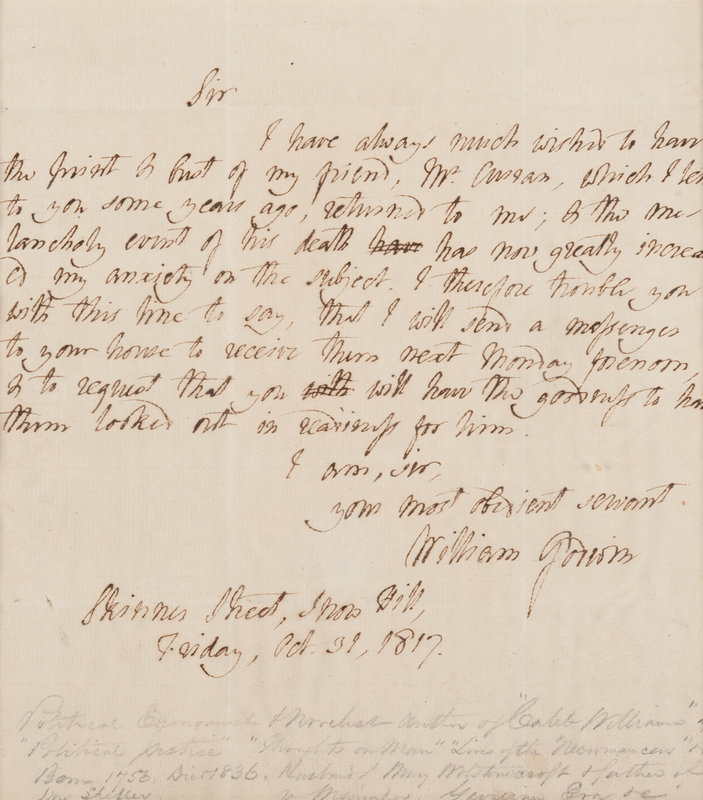 Sir
I have always much wished to have
the print & bust of my friend, Mr. Curran, which I le
to you some years ago, returned to me; & the me-
lancholy event of his death have has now greatly increa
ed my anxiety on the subject. I therefore trouble you
with this line to say, that I will send a messenger
to your house to receive them next Monday forenoon,
& to request that you with will have the goodness to ha
them looked out in readiness for him.
I am, sir,
your most obedient servant
William Godwin
Skinner Street, Snow Hill,
Friday, Oct. 31, 1817.
Political Economist & Novelist Author of "Caleb Williams"
"Political Justice" "Thoughts on Man" "Lives of the Necromancers"
Born 1756. Died 1836. Husband of Mary Wolstoncroft & father of
Mrs Shelley